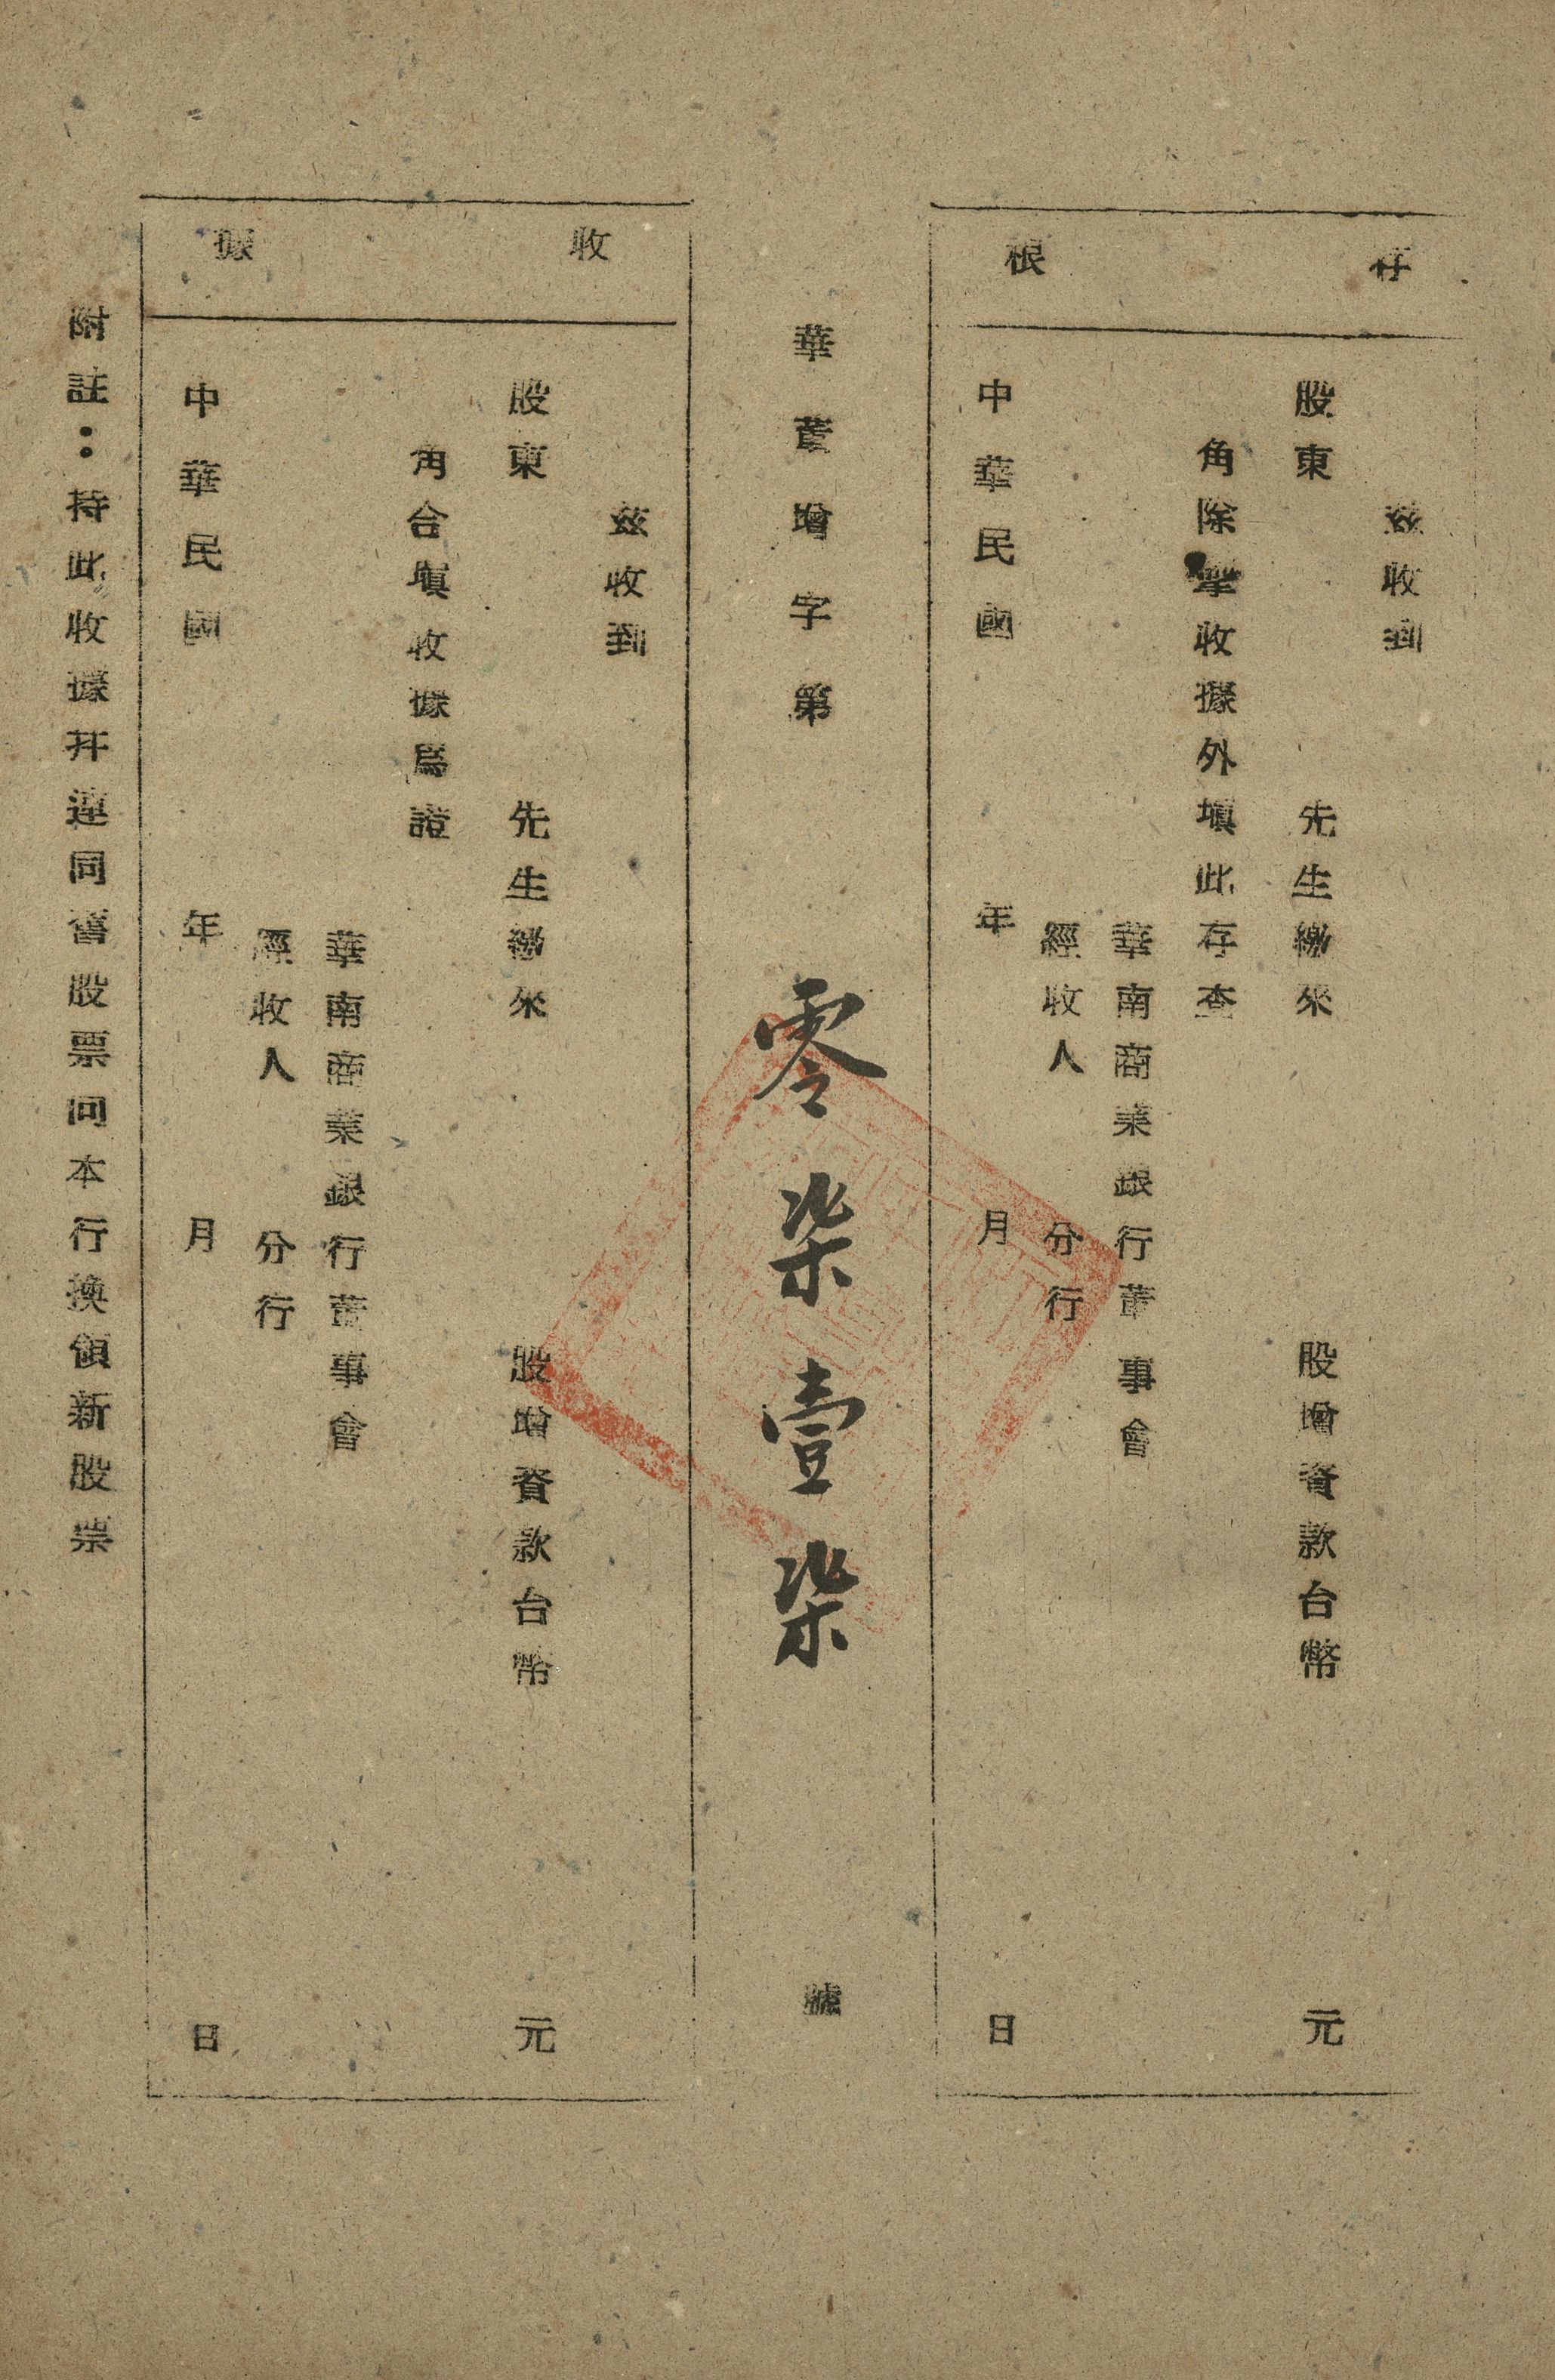 存根
茲收到
股東　先生繳來　股增資款台幣　元
角除掣收據外填此存查
華南商業銀行董事會
經收人　分行
中華民國　年　月　日
華董增字第　零柒壹柒　號
收據
茲收到
股東　先生繳來　股增資款台幣　元
角合塡收據爲證
華南商業銀行董事會
經收人　分行
中華民國　年　月　日
附註：持此收據幷連同舊股票向本行換領新股票